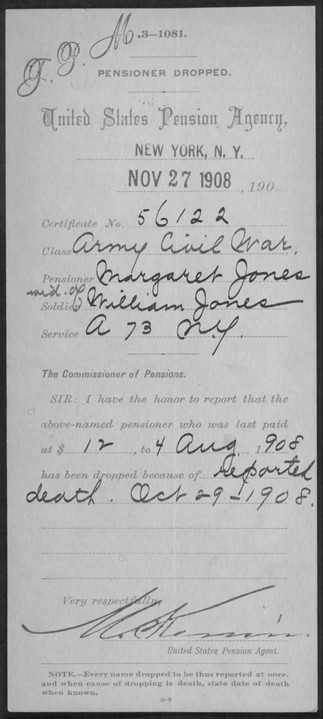 J. P. M.
3-1081.
PENSIONER DROPPED.
United States Pension Agency,
NEW YORK, N. Y.
NOV 27 1908, 190
Certificate No. 56122
Class Army Civil War.
Pensioner Margaret Jones
wid. of
Soldier William Jones
Service A 73 N.Y.
The Commissioner of Pensions.
SIR: I have the honor to report that the
above-named pensioner who was last paid
at $ 12, to 4 Aug, 1908
has been dropped because of reported
death. Oct 29-1908.
Very respectfully,
United States Pension Agent.
NOTE.—Every name dropped to be thus reported at once,
and when cause of dropping is death, state date of death
when known.